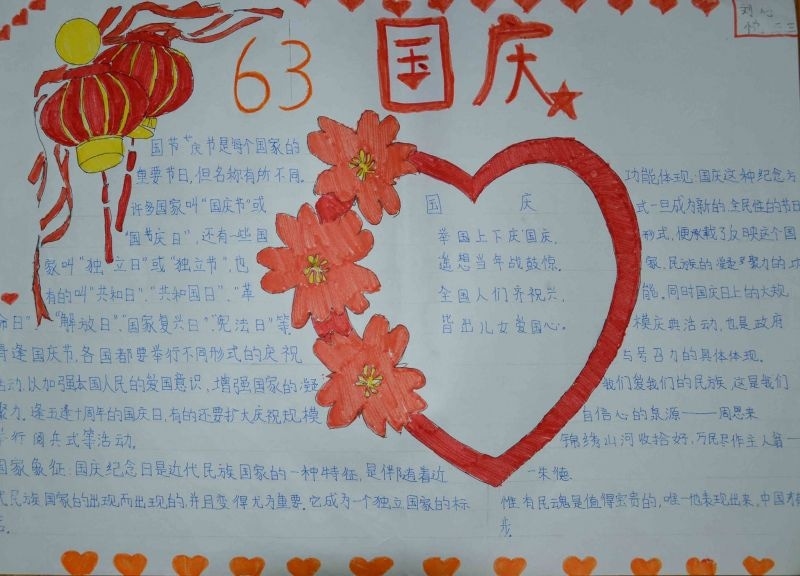 63 国庆
国节节庆节是每个国家的
重要节日,但名称有所不同。
许多国家叫“国庆节”或
“国节庆日”,还有一些国
家叫“独立日”或“独立节”,也
有的叫“共和日”、“共和国日”、“革
命日”、“解放日”、“国家复兴日”、“宪法日”等
逢国庆节,各国都要举行不同形式的庆祝
活动,以加强本国人民的爱国意识,增强国家的凝
聚力。逢五逢十周年的国庆日,有的还要扩大庆祝规模
举行阅兵式等活动。
国家象征:国庆纪念日是近代民族国家的一种特征,是伴随着近
代民族国家的出现而出现的,并且变得尤为重要。它成为一个独立国家的标
志。
国 庆
举国上下庆国庆,
遥想当年战鼓惊。
全国人们齐祝兴,
皆出儿女爱国心。
功能体现:国庆这种纪念方
式一旦成为新的、全民性的节日
形式,便承载了反映这个国
家、民族的凝聚力的功
能。同时国庆日上的大规
模庆典活动,也是政府
与号召力的具体体现。
我们爱我们的民族,这是我们
自信心的泉源——周恩来
锦绣山河收拾好,万民尽作主人翁—
—朱德
惟有民魂是值得宝贵的,唯一他表现出来,中国才有
步。